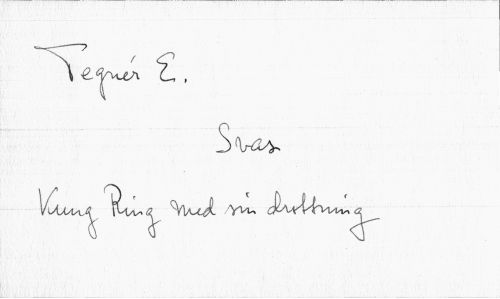 Tegnér E.
Svas
Kung Ring med sin drottning